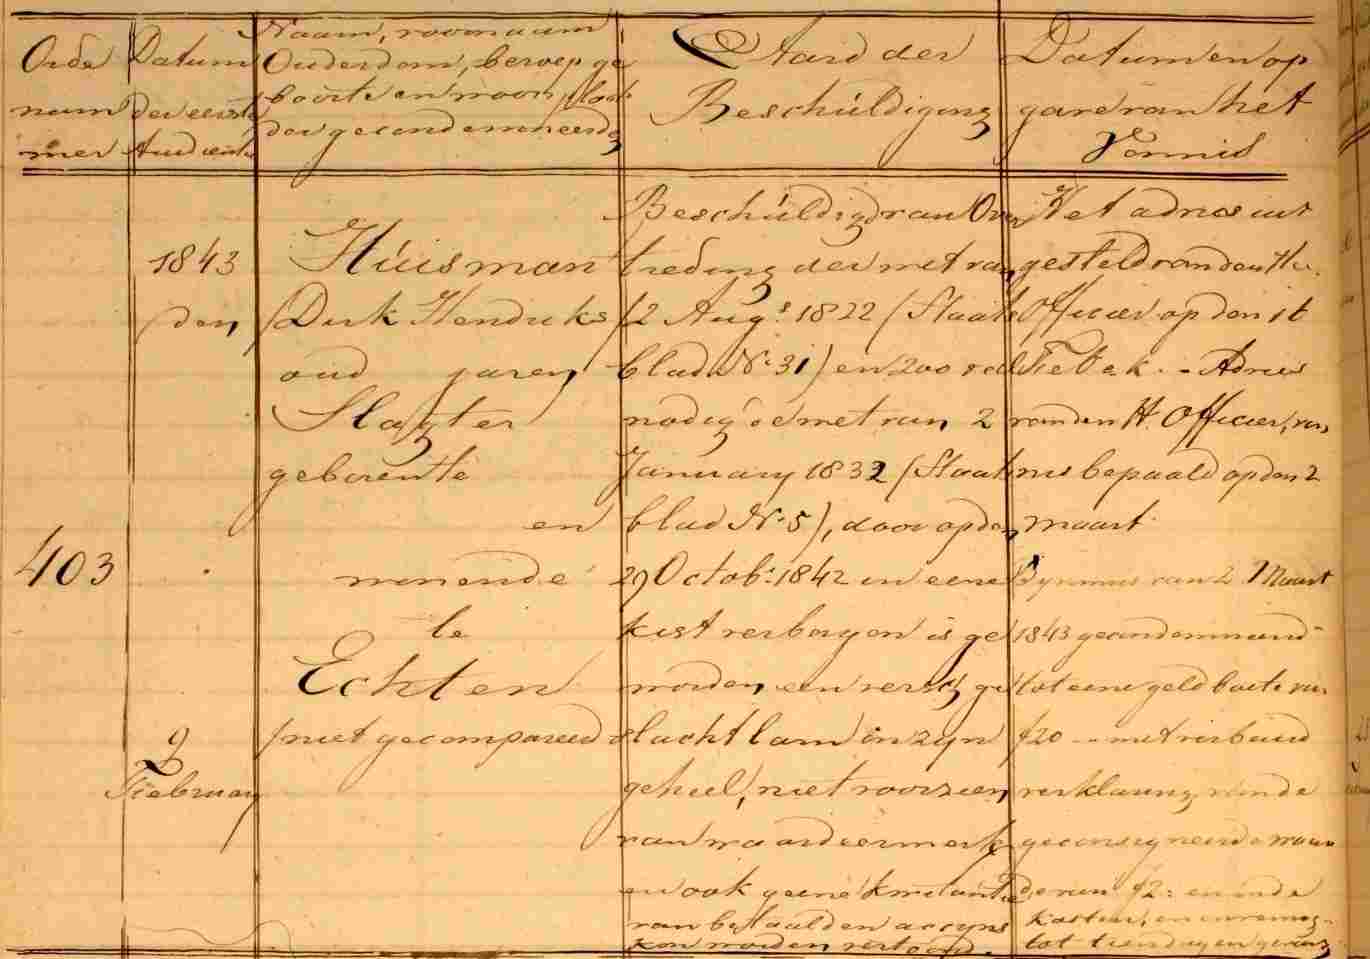 Orde
num
mer
Datum
der eerste
Audientie
Naam, voornaam
Ouderdom, beroep ge
boorte en woonplaats
der gecondemneerde
Aard der
Beschúldiging
Datum en op
gave van het
Vonnis
403
1843
den
9
February
Húisman
Dirk Hendriks
oud jaren
Slagter
geboren te
en
wonende
te
Echten
niet gecompareerd
Beschúldigd van Over
treding der wet van
2 Augs 1822 (Staats
blad No 31) en zoo veel
nodig de wet van 2
January 1832 (Staats
blad No 5), door op den
29 Octobr 1842 in eene
kist verborgen is ge
worden een versch ge
slacht lam in zyn
geheel, niet voorzien
van waardeermerk
en ook geene kwitantie
van betaalden accyns
kon worden vertoond.
Het adries uit
gesteld van den Hr.
Officier op den 16
Feb. k. - Adries
van den H. Officier, von
nis bepaald op den 2
maart
By vonnis van 2 Maart
1843 gecondemneerd
tot eene geldboete van
f20 -- met verbeurd
verklaring van de
geconsigneerde waar
de van f2: en in de
kosten, en
tot tien dagen gevang